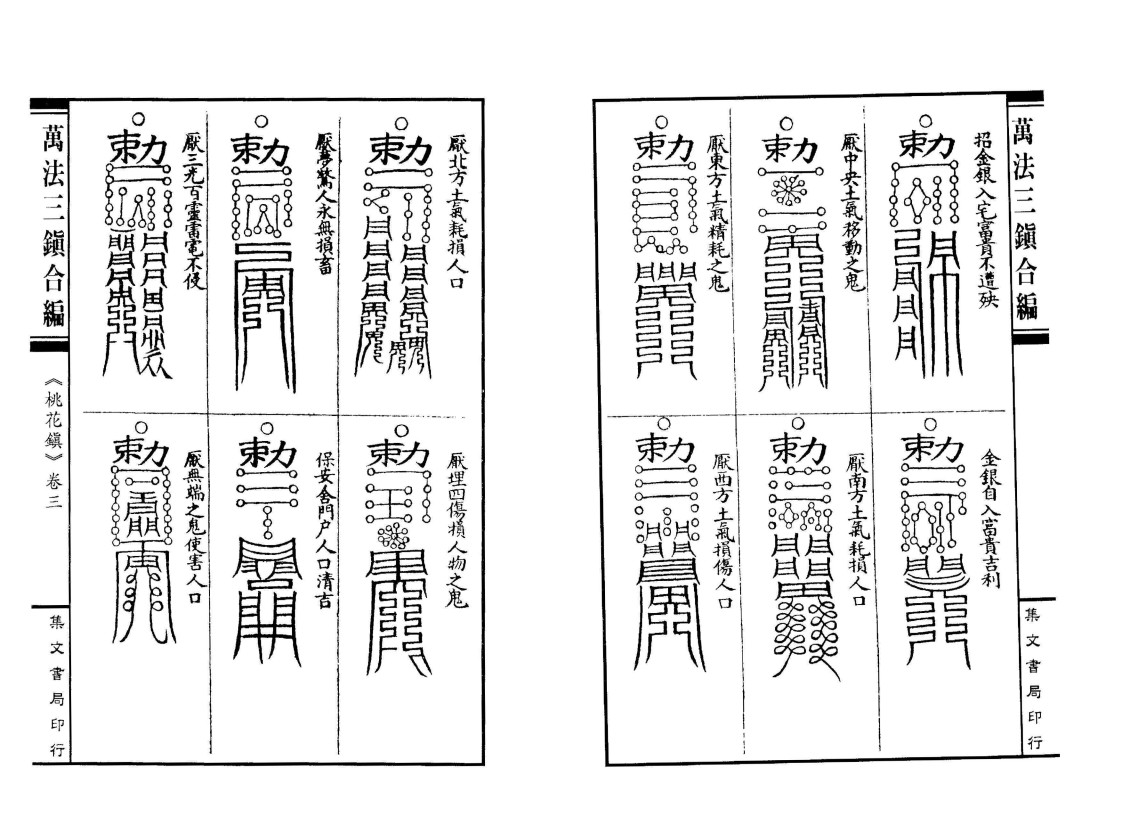 萬法三鎮合編
集文書局印行
勅
招金銀入宅富貴不遭殃
勅
厭中央土氣移動之鬼
勅
厭東方土氣精耗之鬼
勅
金銀自入富貴吉利
勅
厭南方土氣耗損人口
勅
厭西方土氣損傷人口
勅
厭北方土氣耗損人口
勅
厭夢驚人永無損畜
勅
厭三光百靈雷電不侵
勅
厭埋四傷損人物之鬼
勅
保安舍門户人口清吉
勅
厭無端之鬼使害人口
萬法三鎮合編
《桃花鎮》卷三
集文書局印行